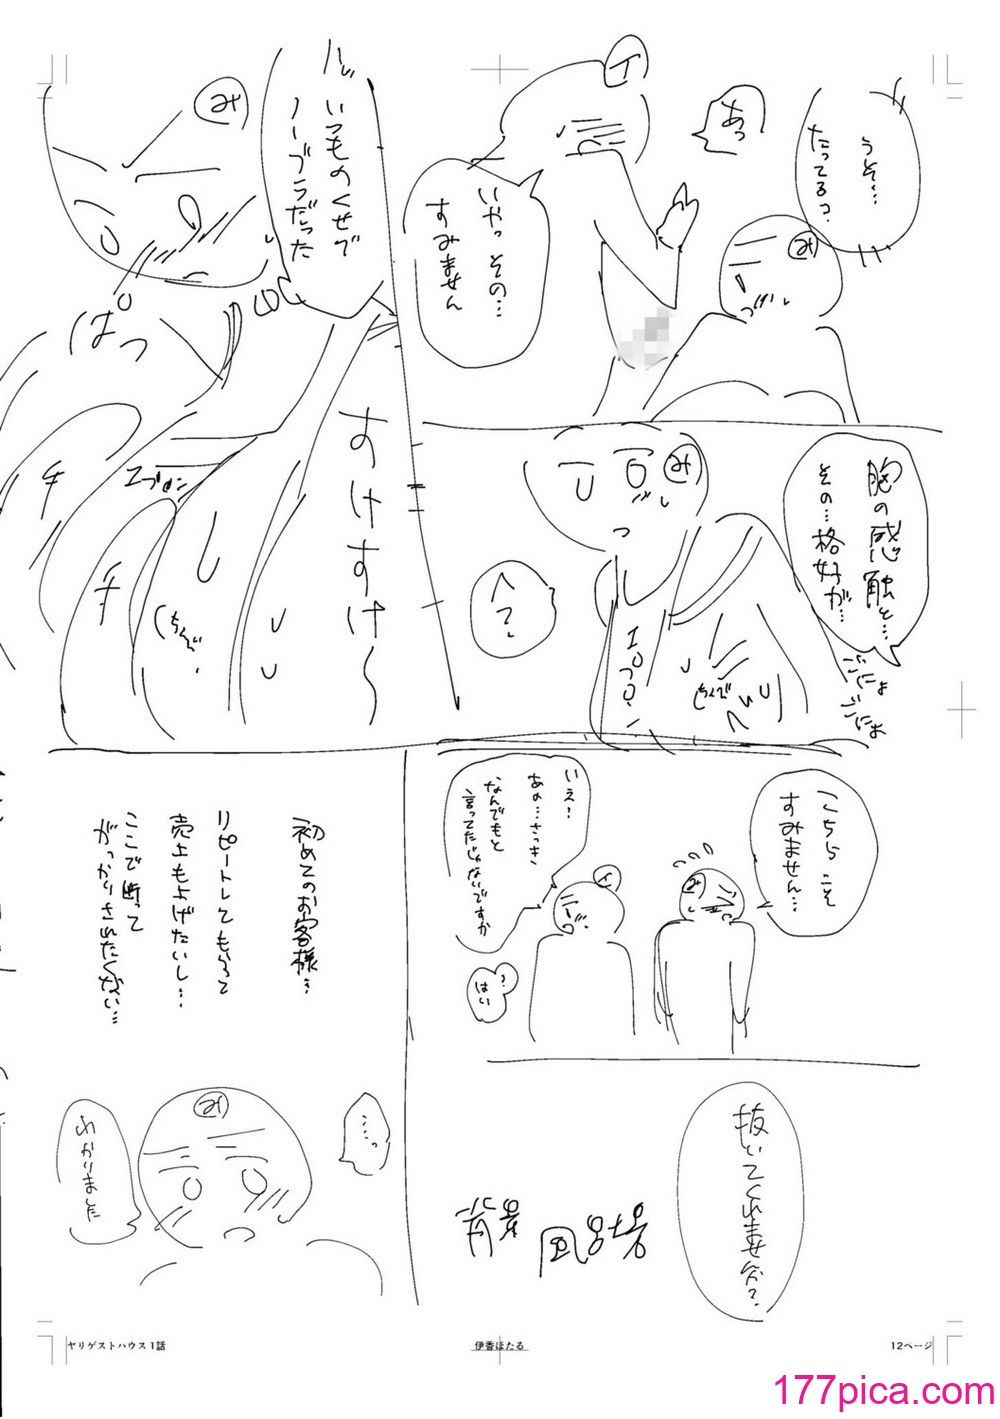 うそ…
たってるっ?
み
あっ
イ
いやっ その…
すみません
いつものくせで
ノーブラだった
み
はっ
すけすけ〜
エプロン
チ
チ
胸の感触と…
その…格好が…
ごにょ
ごにょ
み
へ?
エプロン
こちらこそ
すみません…
み
いえ!
あの…さっき
なんでもと
言ってたじゃないですか
イ
?
はい
抜いてくれませんか?
背景 風呂場
初めてのお客様…
リピートしてもらって
売上もよげたいし…
ここで断って
がっかりされたくない…
……っ
み
わかりました
ヤリゲストハウス1話
伊香ほたる
12ページ
177pica.com